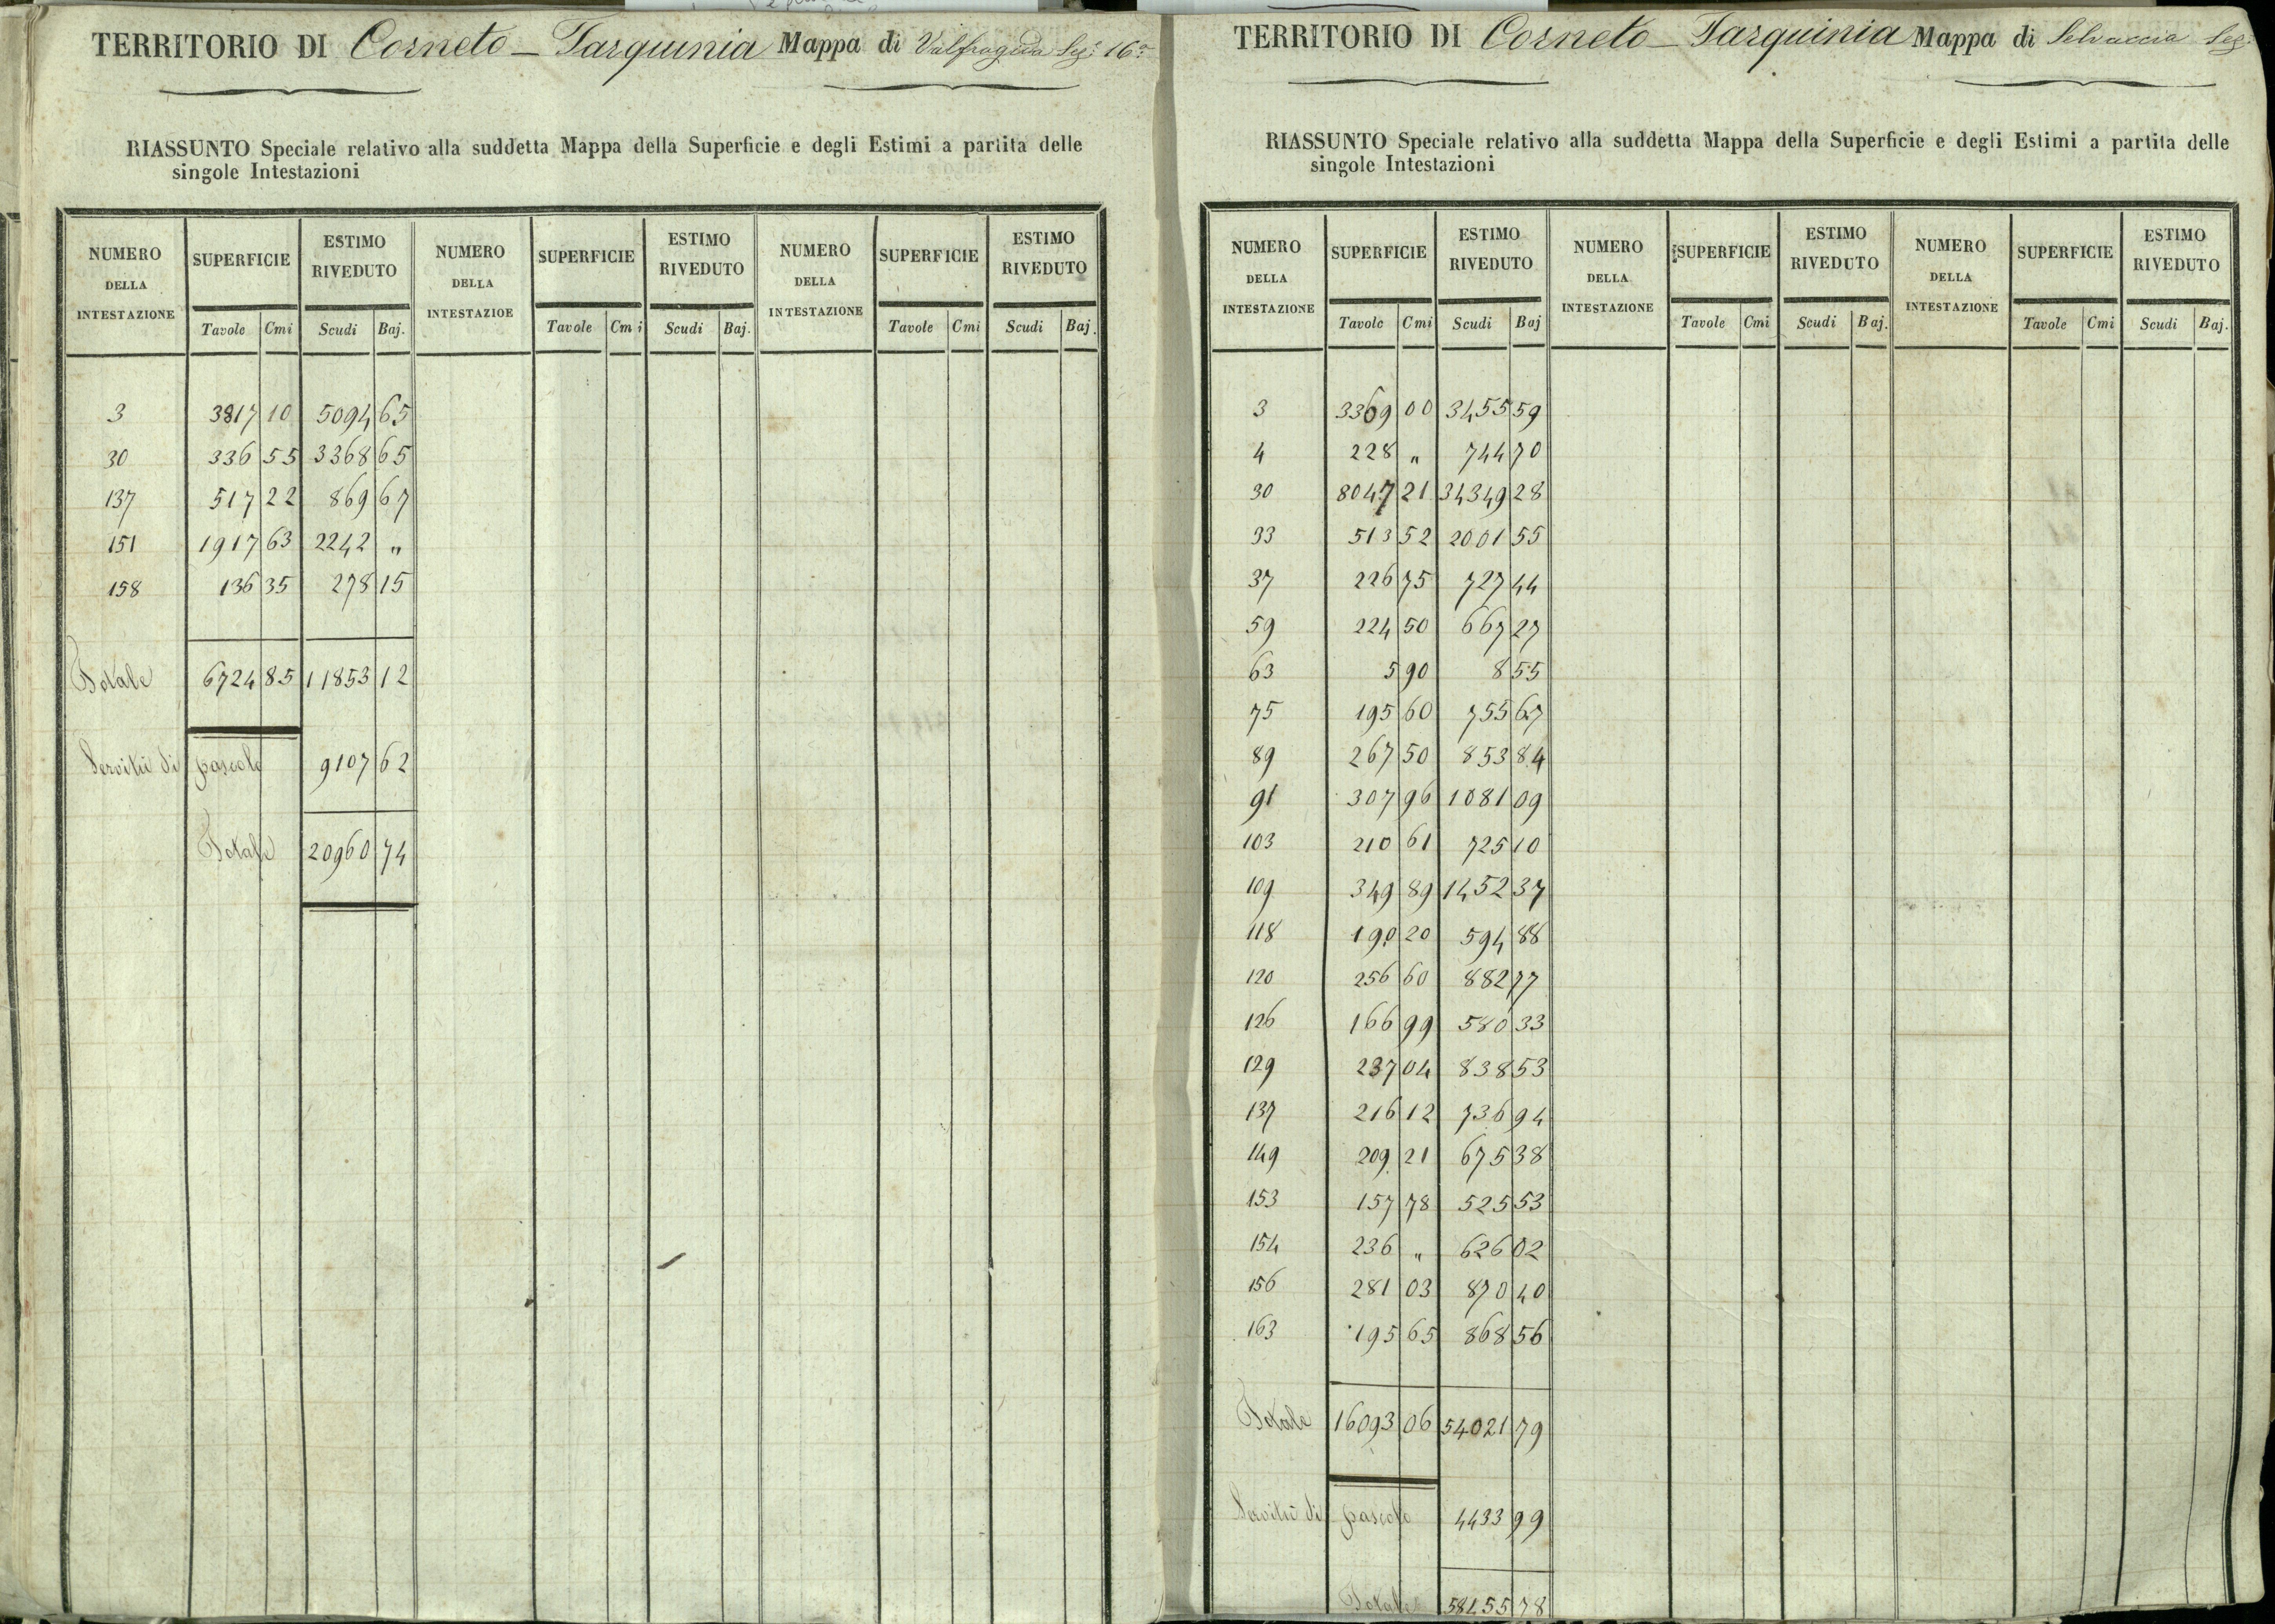 TERRITORIO DI Corneto - Tarquinia Mappa di Valfragida Sez. 16.a
RIASSUNTO Speciale relativo alla suddetta Mappa della Superficie e degli Estimi a partita delle
singole Intestazioni
NUMERO DELLA INTESTAZIONE SUPERFICIE ESTIMO RIVEDUTO NUMERO DELLA INTESTAZIOE SUPERFICIE ESTIMO RIVEDUTO NUMERO DELLA INTESTAZIONE SUPERFICIE ESTIMO RIVEDUTO
Tavole Cmi Scudi Baj. Tavole Cmi Scudi Baj. Tavole Cmi Scudi Baj.
3 3817 10 5094 65
30 336 55 3368 65
137 517 22 869 67
151 1917 63 2242 „
158 136 35 278 15
Totale 6724 85 11853 12
Servitù di pascolo 9107 62
Totale 20960 74
TERRITORIO DI Corneto - Tarquinia Mappa di Selvaccia Sez.
RIASSUNTO Speciale relativo alla suddetta Mappa della Superficie e degli Estimi a partita delle
singole Intestazioni
NUMERO DELLA INTESTAZIONE SUPERFICIE ESTIMO RIVEDUTO NUMERO DELLA INTESTAZIONE SUPERFICIE ESTIMO RIVEDUTO NUMERO DELLA INTESTAZIONE SUPERFICIE ESTIMO RIVEDUTO
Tavole Cmi Scudi Baj Tavole Cmi Scudi Baj. Tavole Cmi Scudi Baj.
3 3369 00 3455 59
4 228 „ 744 70
30 8047 21 34349 28
33 513 52 2001 55
37 226 75 727 44
59 224 50 667 27
63 5 90 8 55
75 195 60 755 67
89 267 50 853 84
91 307 96 1081 09
103 210 61 725 10
109 349 89 1452 37
118 190 20 594 88
120 256 60 882 77
126 166 99 580 33
129 237 04 838 53
137 216 12 736 94
149 209 21 675 38
153 157 78 525 53
154 236 „ 626 02
156 281 03 870 40
163 195 65 868 56
Totale 16093 06 54021 79
Servitù di pascolo 4433 99
Totale 58455 78